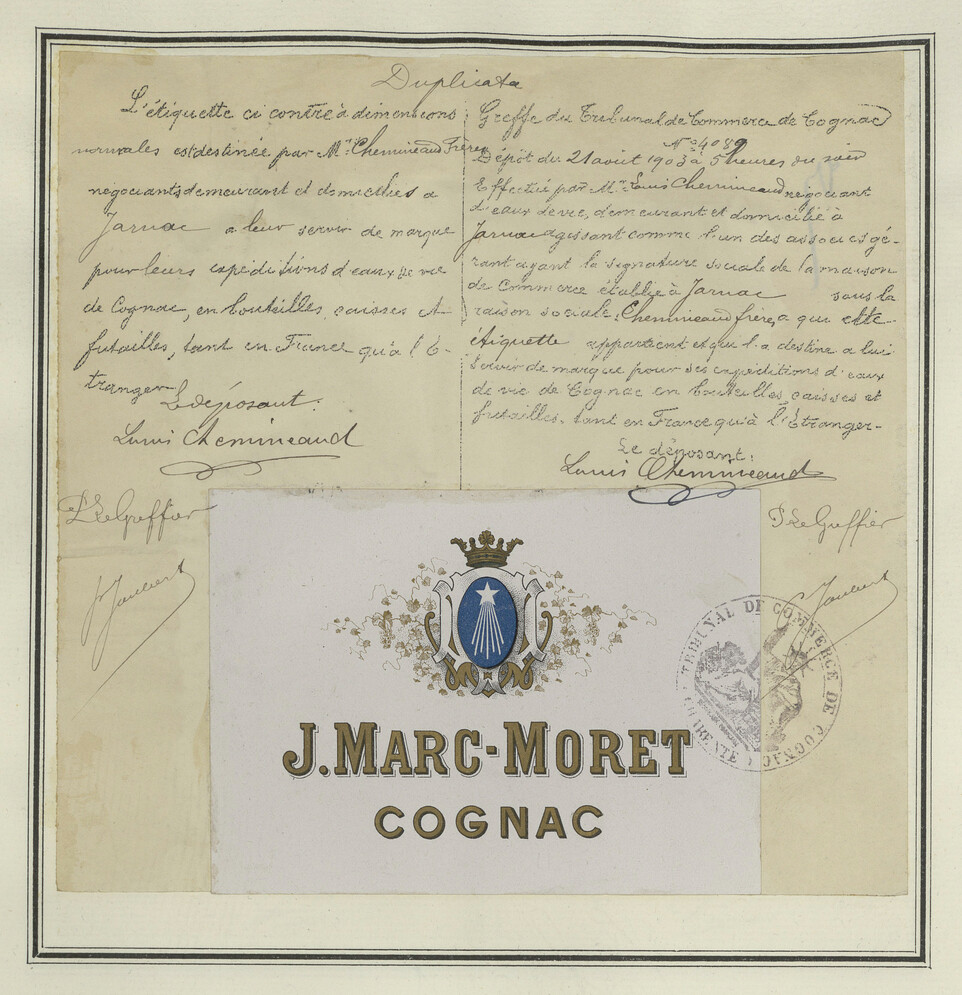 Duplicata
L'étiquette ci contre à dimensions
normales est destinée par Mrs Chemineaud Frères
negociants demeurant et domiciliés a
Jarnac a leur servir de marque
pour leurs expéditions d'eaux de vie
de Cognac, en bouteilles, caisses et
futailles, tant en France qu'à l'E-
tranger
Le déposant:
Louis Chemineaud
Le Greffier
Greffe du Tribunal de Commerce de Cognac
No 4089
Dépôt du 21 août 1903 à 5 heures du soir
Effectué par Mr Louis Chemineaud négociant
d'eaux de vie, demeurant et domicilié à
Jarnac agissant comme l'un des associés gé-
rant ayant la signature sociale de la maison
de Commerce établie à Jarnac sous la
raison sociale: Chemineaud frères, a qui cette
étiquette appartient et qui l'a destine a lui
servir de marque pour ses expéditions d'eaux
de vie de Cognac en bouteilles, caisses et
futailles, tant en France qu'à l'Etranger-
Le déposant:
Louis Chemineaud
P. Le Greffier
J. MARC-MORET
COGNAC
TRIBUNAL DE COMMERCE DE COGNAC
CHARENTE